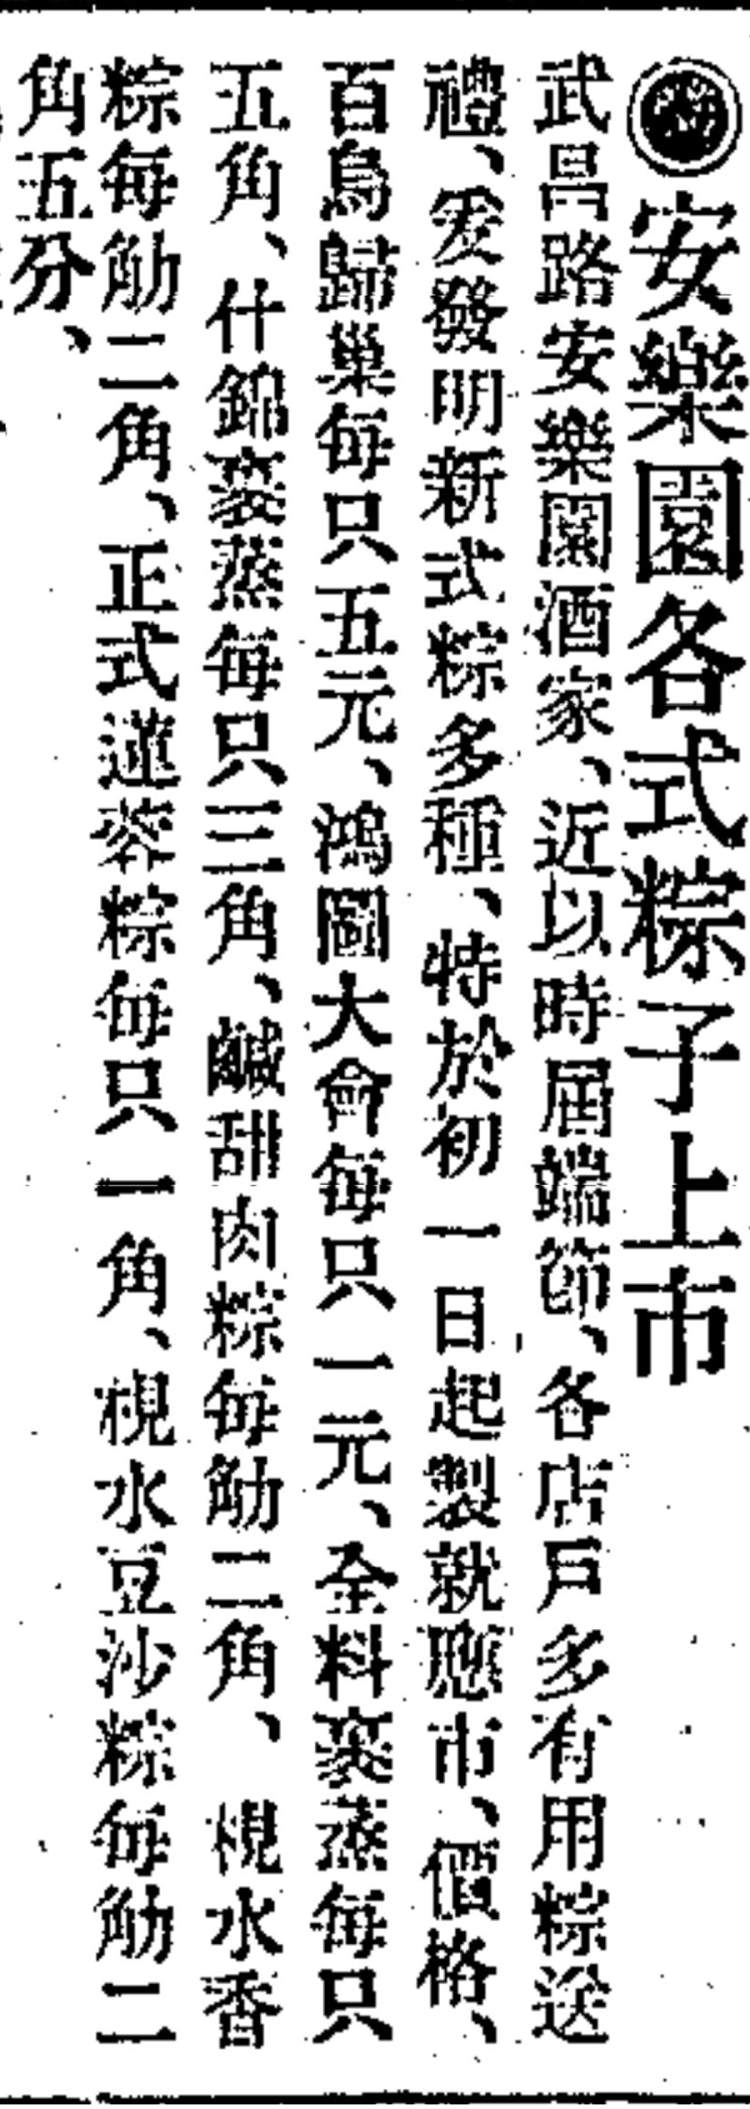 安樂園各式粽子上市
武昌路安樂園酒家、近以時屆端節、各店戶多有用粽送
禮、爰發明新式粽多種、特於初一日起製就應市、價格、
百鳥歸巢每只五元、鴻圖大會每只一元、全料裹蒸每只
五角、什錦裹蒸每只三角、鹹甜肉粽每觔二角、梘水香
粽每觔二角、正式蓮蓉粽每只一角、梘水豆沙粽每觔二
角五分、